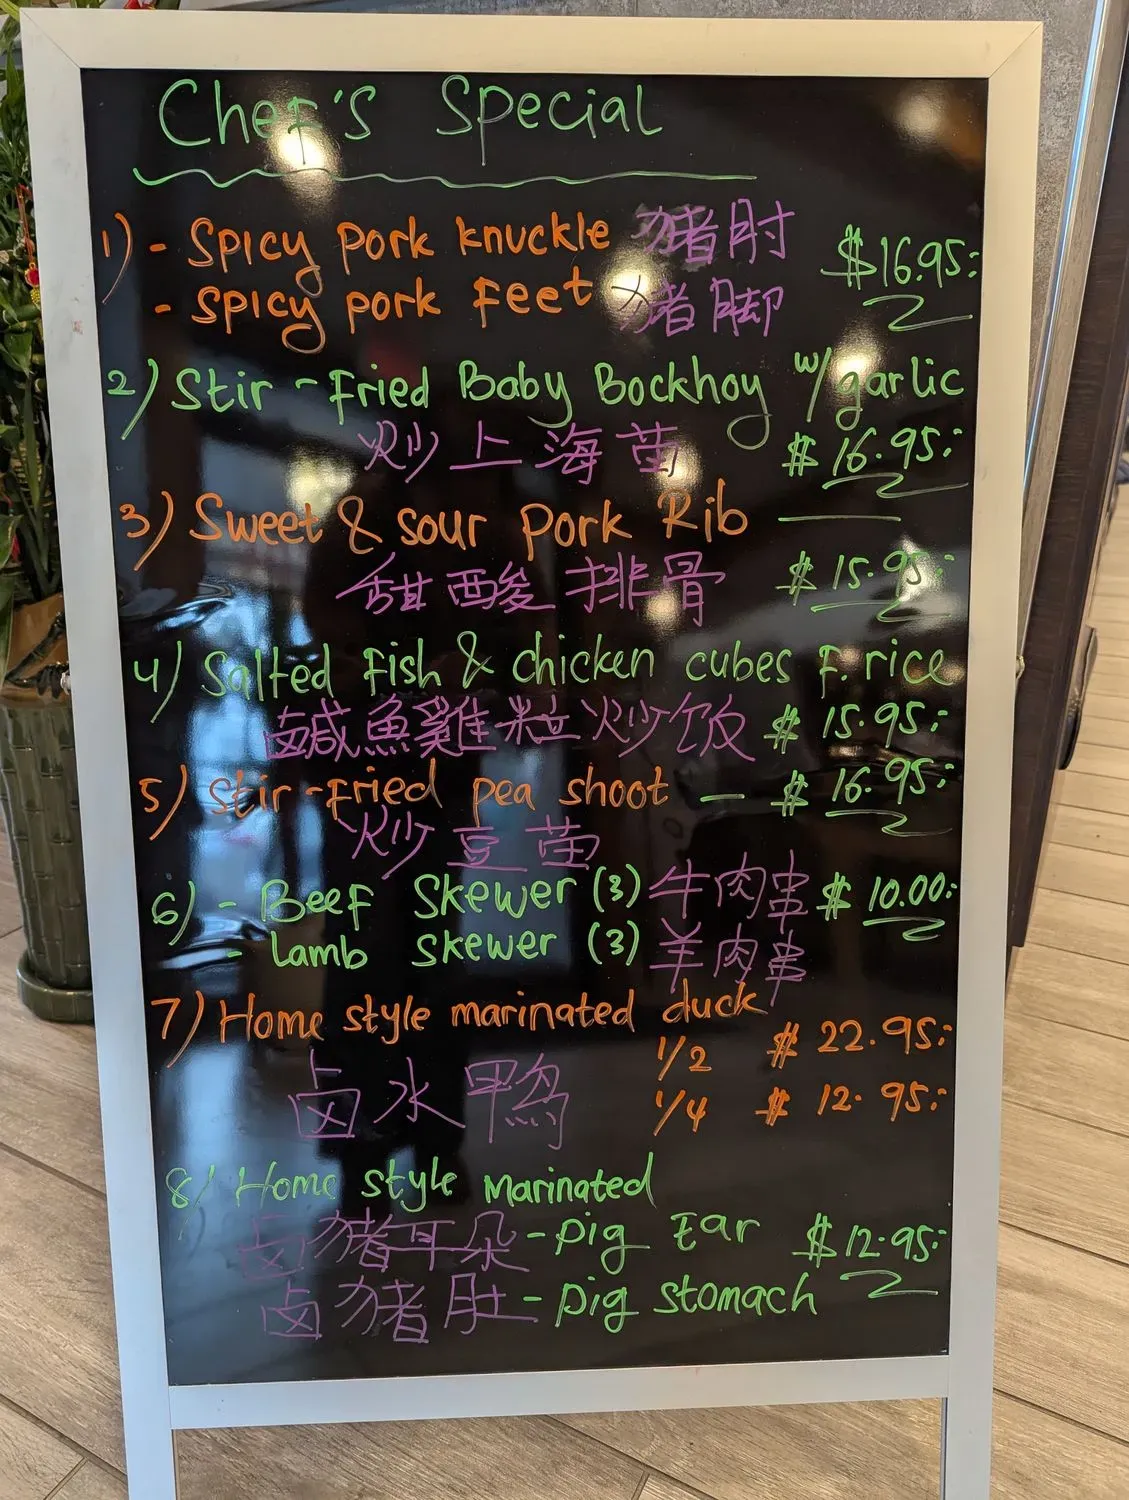 Chef's Special
1) - Spicy pork knuckle 猪肘 $16.95:
- Spicy pork Feet 猪脚
2) Stir-Fried Baby Bockhoy w/garlic
炒上海苗 $16.95:
3) Sweet & sour pork Rib
甜酸排骨 $15.95:
4) Salted Fish & chicken cubes F. rice
鹹魚雞粒炒饭 $15.95:
5) Stir-Fried pea shoot — $16.95:
炒豆苗
6) - Beef Skewer (3) 牛肉串 $10.00:
- Lamb Skewer (3) 羊肉串
7) Home style marinated duck
1/2 $22.95:
卤水鴨 1/4 $12.95:
8) Home style Marinated
卤猪耳朵 - pig Ear $12.95:
卤猪肚 - pig stomach